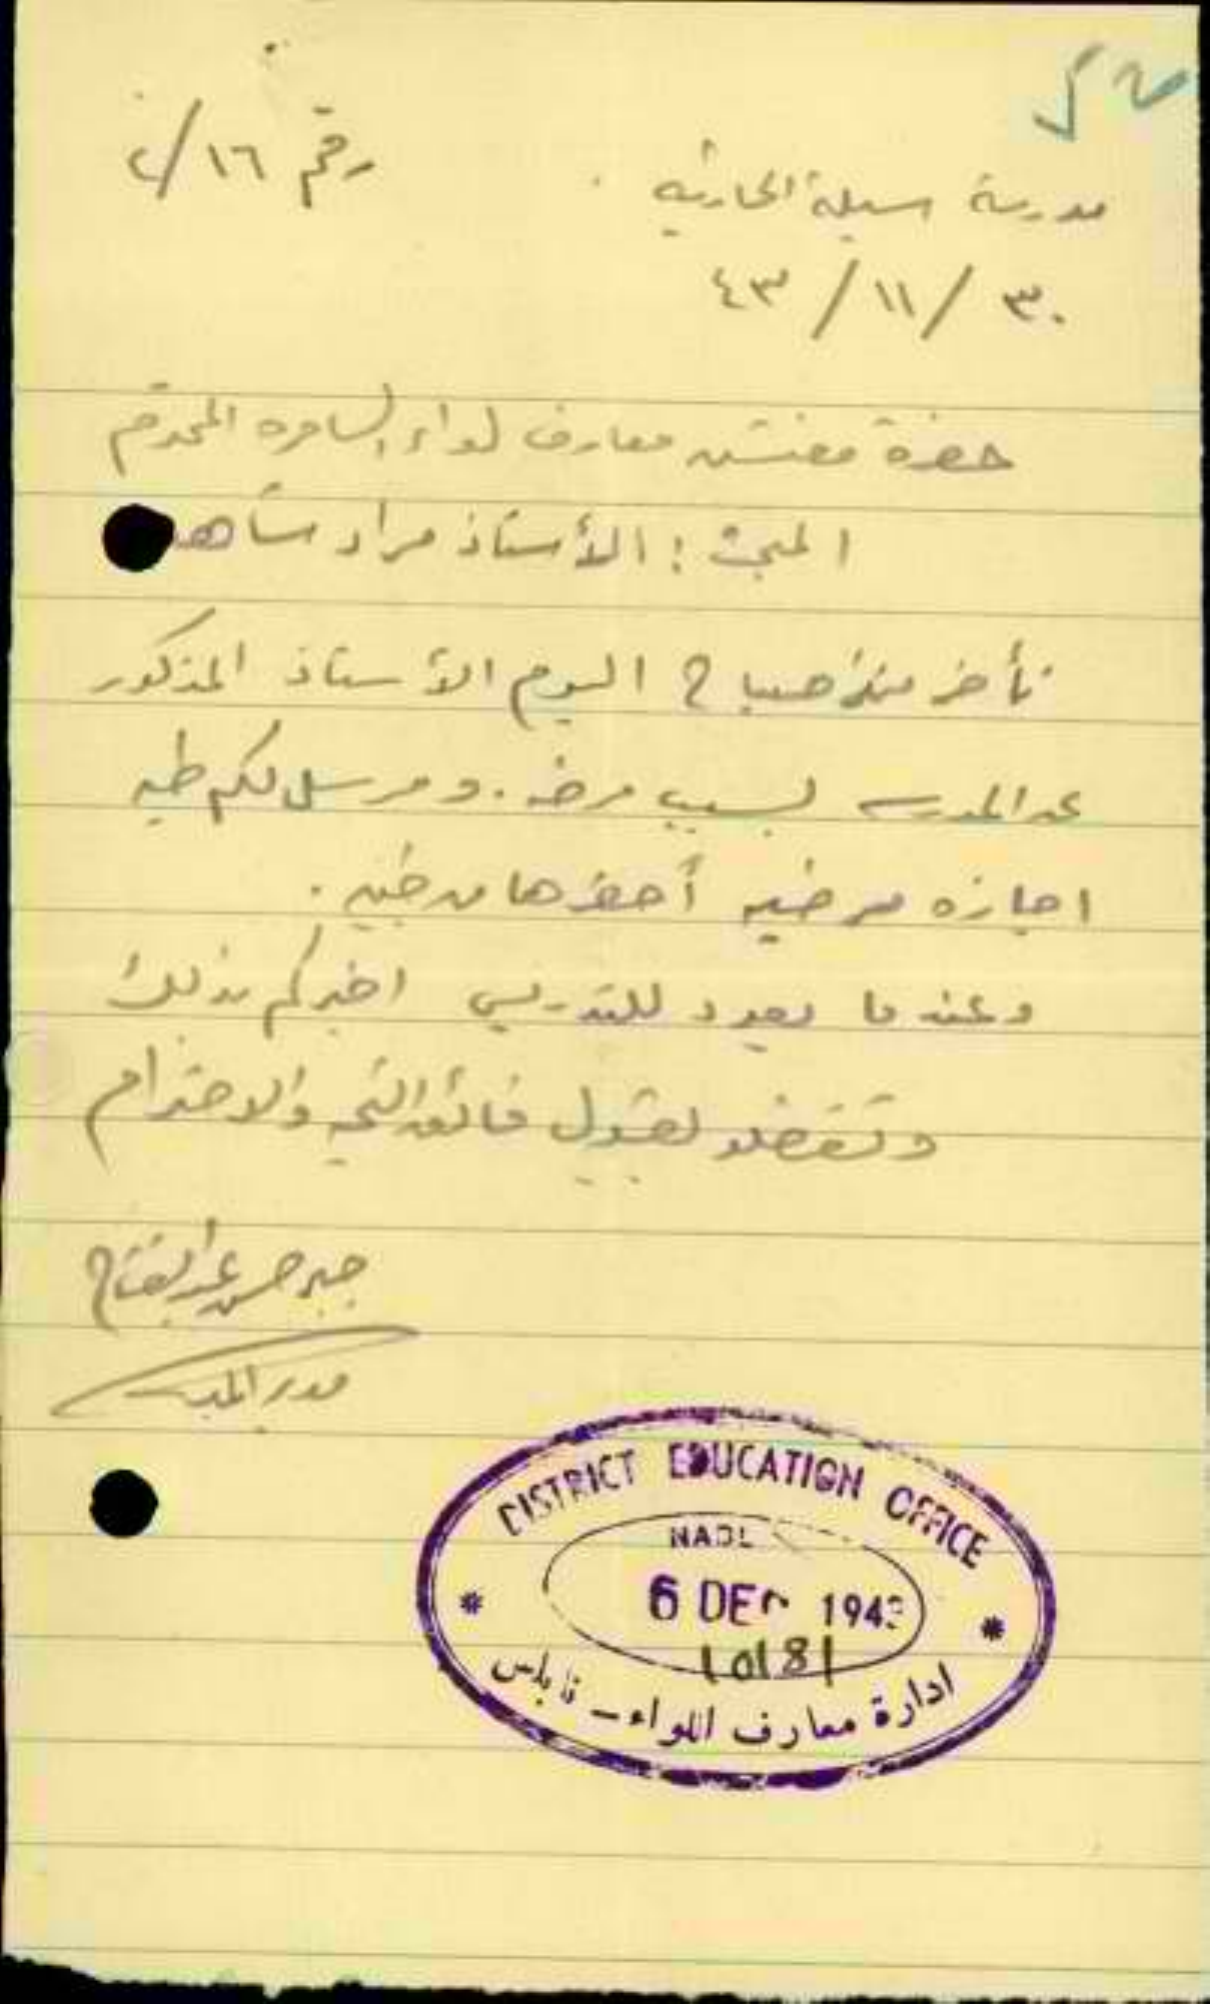 رقم ١٦/٢
مدرسة سيلة الحارثيه
٣٠/١١/٤٣
حضرة مفتش معارف لواء السامره المحترم
المبحث: الأستاذ مراد شاه
تأخر منذ صباح اليوم الأستاذ المذكور
عن المدرسه بسبب مرضه. ومرسل لكم طيه
اجازه مرضيه أحضرها من جنين.
وعندما يعود للتدريس اخبركم بذلك
وتفضلو بقبول فائق التحيه والاحترام
جبر حسن عبد الفتاح
مدير المدرسه
DISTRICT EDUCATION OFFICE
NABL
6 DEC 1943
10181
ادارة معارف اللواء - نابلس